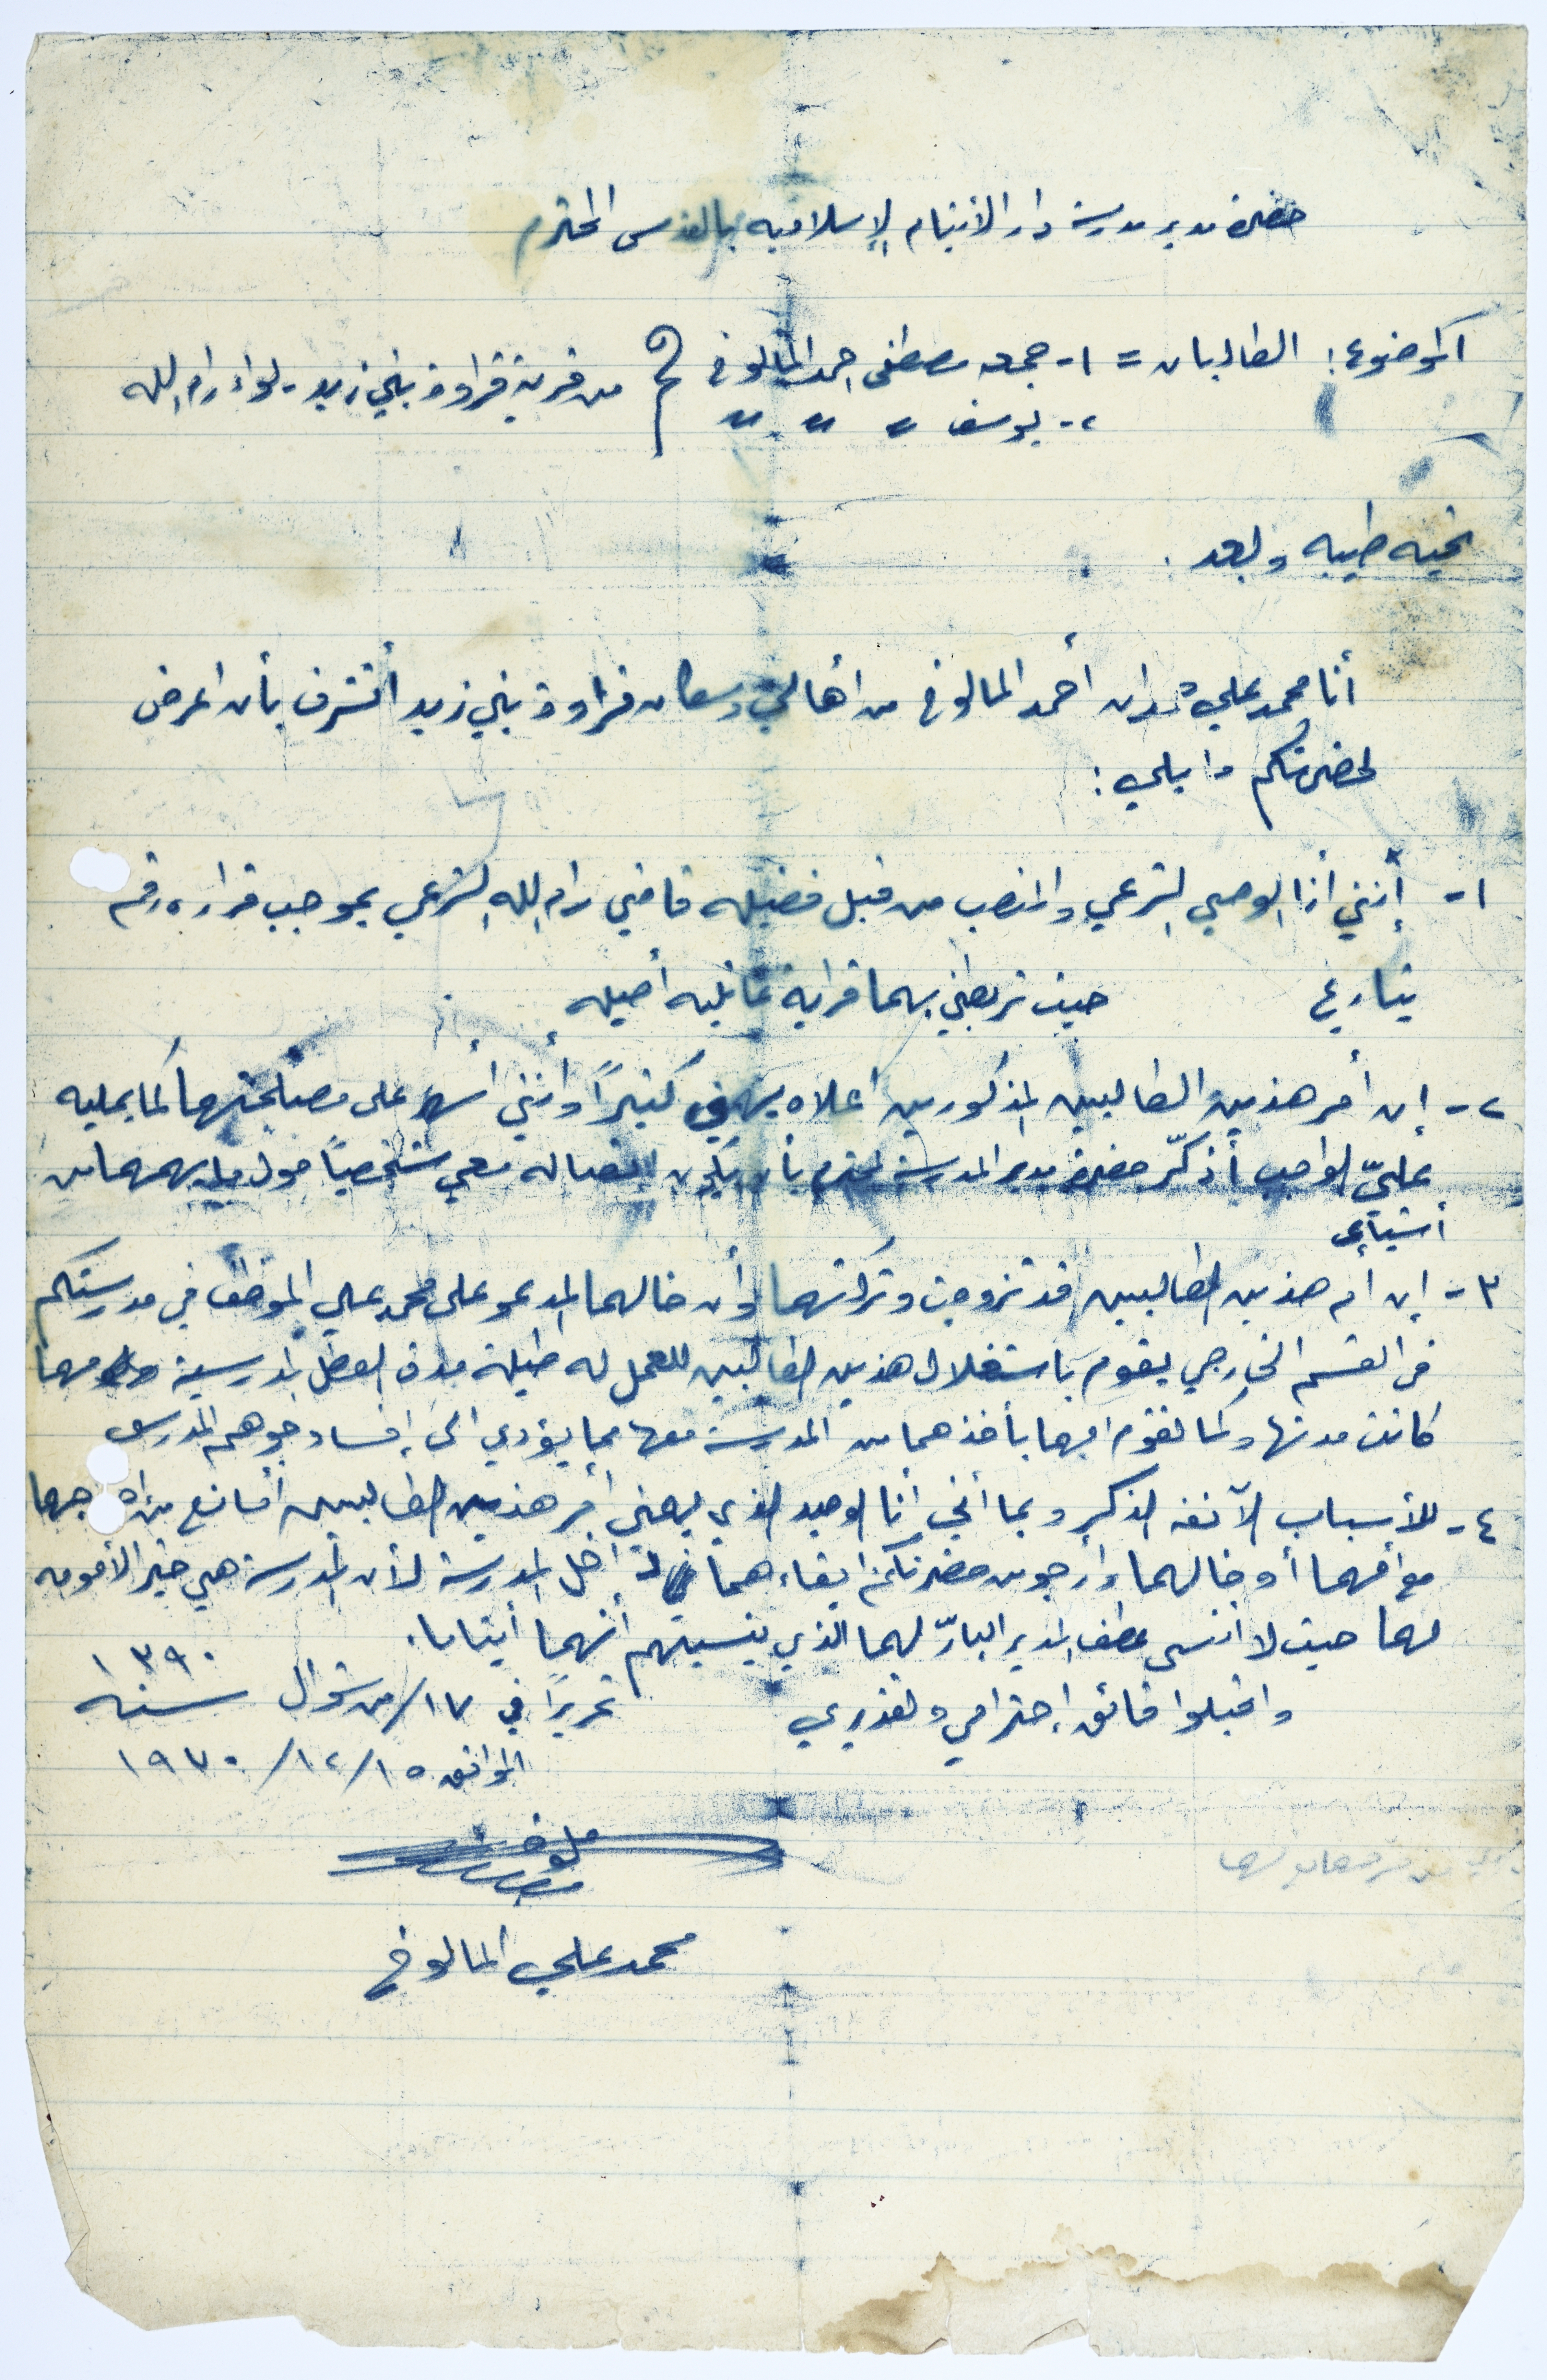 حضرة مدير مدرسة دار الأيتام الإسلاميه بالقدس المحترم
الموضوع: الطالبان = ١- جمعه مصطفى احمد المالوخ من قرية قراوة بني زيد - لواء رام الله
٢- يوسف " " "
تحيه طيبه وبعد .
أنا محمد علي أحمد المالوخ من أهالي وسكان قراوة بني زيد أتشرف بأن اعرض
لحضرتكم ما يلي :
١- إنني أنا الوصي الشرعي والمنصب من قبل فضيلة قاضي رام الله الشرعي بموجب قراره رقم
بتاريخ حيث تربطني بهما قرابه عائليه أصيله
٢- إن أمر هذين الطالبين المذكورين اعلاه يهمني كثيرًا وأنني أسهر على مصلحتهما كما يمليه
عليّ الواجب أذكّر حضرة مدير المدرسة المحترم بأن يكون اتصاله معي شخصياً حول ما يهمهما من
أشياء
٣- إن أم هذين الطالبين قد تزوجت وتركتهما وأن خالهما المدعو على محمد علي الموظف في مدرستكم
في القسم الخارجي يقوم باستغلال هذين الطالبين للعمل له طيلة مدة العطل المدرسية مهما
كانت مدتها وكما تقوم امهما بأخذهما من المدرسة معها مما يؤدي الى إفساد جوهم المدرسي
٤- للأسباب الآنفة الذكر وبما أنني أنا الوحيد الذي يهمني أمر هذين الطالبين أمانع من اخراجهما
مع أمهما أو خالهما وأرجو من حضرتكم ابقاءهما داخل المدرسة لأن المدرسة هي خير الأمومه
لهما حيث لا أنسى عطف المدير البارّ لهما الذي ينسيهم أنهما أيتاما .
واقبلوا فائق إحترامي وتقديري تحريرًا في ١٧/من شوال سنه ١٣٩٠
الموافق ١٥/١٢/١٩٧٠
محمد علي المالوخ